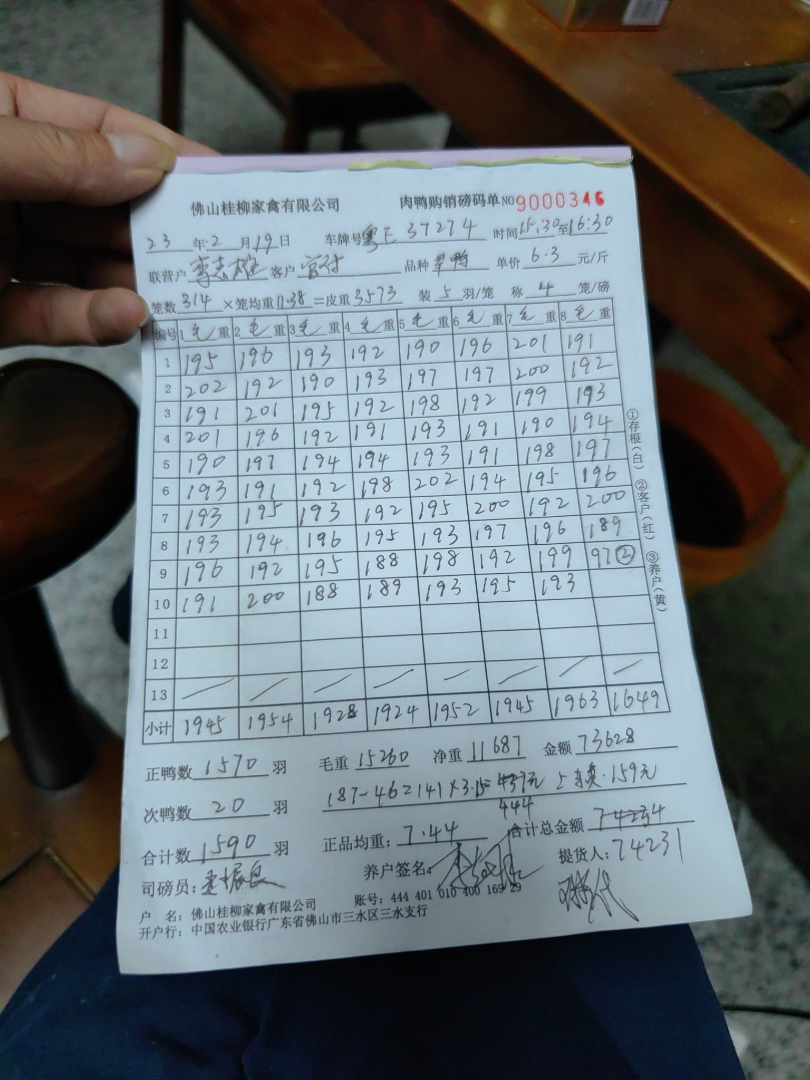 佛山桂柳家禽有限公司 肉鸭购销磅码单 NO 9000346
23 年 2 月 19 日 车牌号 粤E 37274 时间 15:30 至 16:30
联营户 李志雄 客户 品种 单价 6.3 元/斤
笼数 314 ×笼均重 11.38 =皮重 3573 装 5 羽/笼 称 4 笼/磅
编号 1 毛 重 2 毛 重 3 毛 重 4 毛 重 5 毛 重 6 毛 重 7 毛 重 8 毛 重
1 195 196 193 192 190 196 201 191
2 202 192 190 193 197 197 200 192
3 191 201 195 192 198 192 199 193
4 201 196 192 191 193 191 190 194
5 190 197 194 194 193 191 198 197
6 193 191 192 198 202 194 195 196
7 193 195 193 192 195 200 192 200
8 193 194 196 195 193 197 196 189
9 196 192 195 188 198 192 199 97②
10 191 200 188 189 193 195 193
11
12
13
小计 1945 1954 1928 1924 1952 1945 1963 1649
①存根(白) ②客户(红) ③养户(黄)
正鸭数 1570 羽 毛重 15260 净重 11687 金额 73628
次鸭数 20 羽 187-46=141×3.15 437元 上车费.159元
444
合计数 1590 羽 正品均重: 7.44 合计总金额 74234
司磅员: 养户签名: 提货人: 74231
户 名: 佛山桂柳家禽有限公司 账号: 444 401 010 400 169 29
开户行: 中国农业银行广东省佛山市三水区三水支行